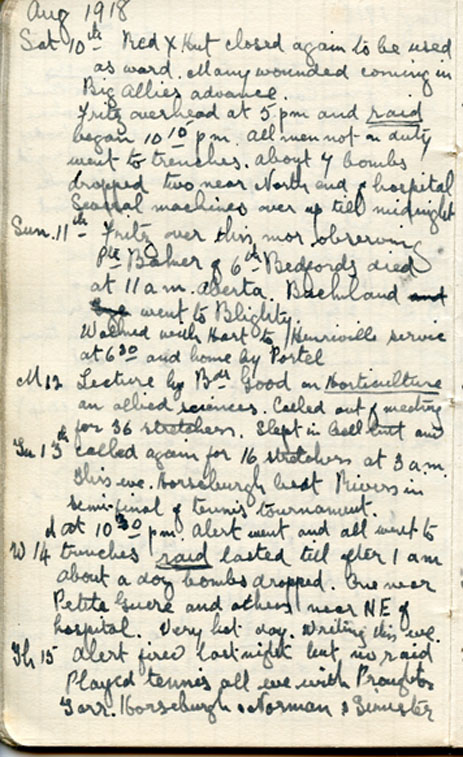 Aug 1918
Sat 10th Red X Hut closed again to be used
as ward. Many wounded coming in
Big Allies advance.
Fritz overhead at 5 pm and raid
began 10 10 pm. All men not on duty
went to trenches. About 7 bombs
dropped two near North end of hospital
Several machines over up till midnight
Sun. 11th Fritz over this mor observing
Pte Baker of 6th Bedfords died
at 11 a.m. Buckland and
went to Blighty.
Walked with Hart to Henriville service
at 6 30 and home by Portel
M 12 Lecture by Bdr Good on Horticulture
an allied sciences. Called out of meeting
for 36 stretchers. Slept in bell tent and
Tu 13th called again for 16 stretchers at 3 a.m.
This eve. Horseburgh beat Rivers in
semi-final of tennis tournament.
At 10 30 pm. alert went and all went to
W 14 trenches raid lasted till after 1 am
about a doz bombs dropped. One near
Petite and others near NE of
hospital. Very hot day. Writing this eve.
Th 15 Alert fired last night but no raid
Played tennis all eve with
Horseburgh Norman &